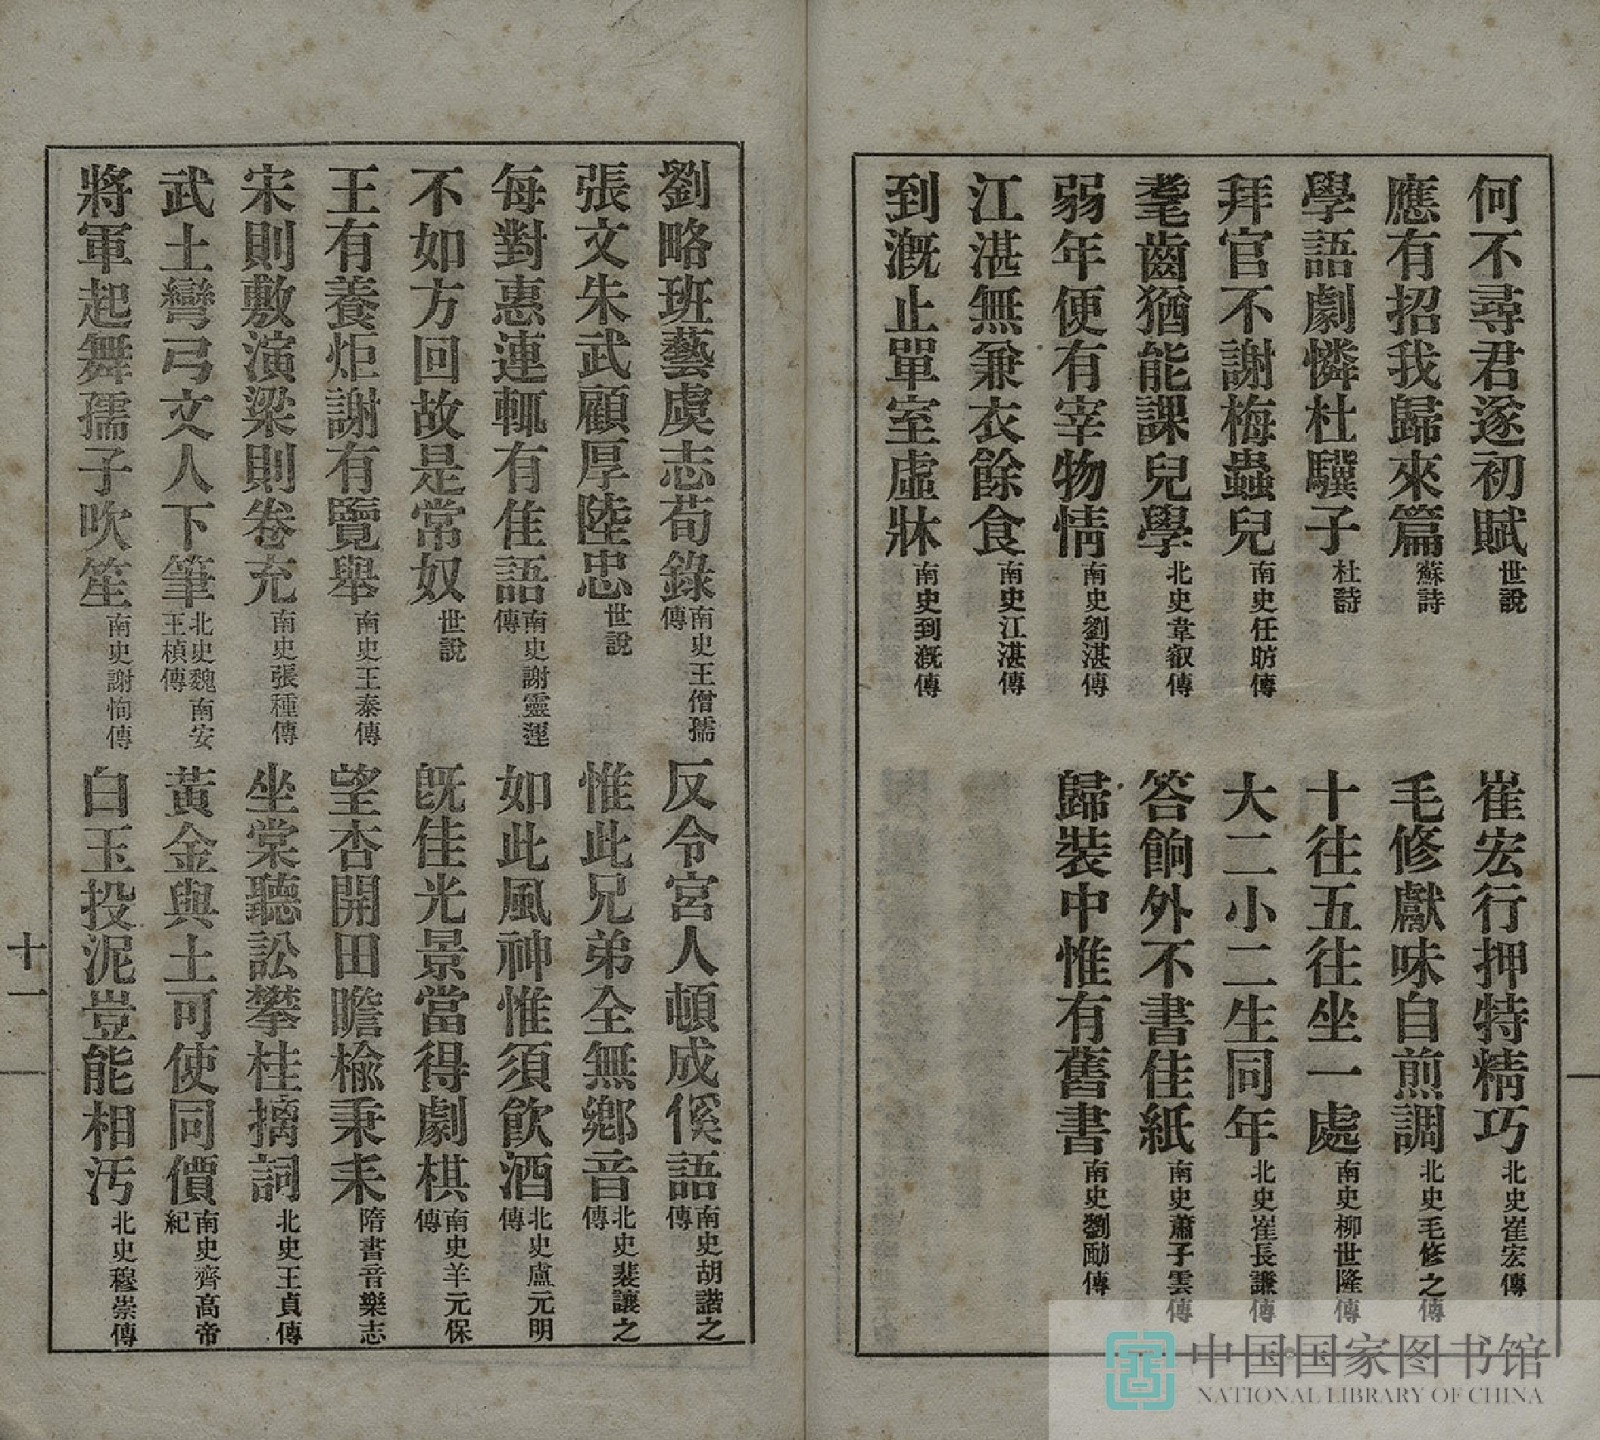 何不尋君遂初賦 世說 崔宏行押特精巧 北史崔宏傳
應有招我歸來篇 蘇詩 毛修獻味自煎調 北史毛修之傳
學語劇憐杜驥子 杜詩 十往五往坐一處 南史柳世隆傳
拜官不謝梅蟲兒 南史任昉傳 大二小二生同年 北史崔長謙傳
耄齒猶能課兒學 北史韋叡傳 答餉外不書佳紙 南史蕭子雲傳
弱年便有宰物情 南史劉湛傳 歸裝中惟有舊書 南史劉勔傳
江湛無兼衣餘食 南史江湛傳
到溉止單室虛牀 南史到溉傳
劉略班藝虞志荀錄 南史王僧孺傳 反令宮人頓成傒語 南史胡諧之傳
張文朱武顧厚陸忠 世說 惟此兄弟全無鄉音 北史裴讓之傳
每對惠連輒有佳語 南史謝靈運傳 如此風神惟須飲酒 北史盧元明傳
不如方回故是常奴 世說 既佳光景當得劇棋 南史羊元保傳
王有養炬謝有覽舉 南史王泰傳 望杏開田瞻榆秉耒 隋書音樂志
宋則敷演梁則卷充 南史張種傳 坐棠聽訟攀桂摛詞 北史王貞傳
武士彎弓文人下筆 北史魏南安王楨傳 黃金與土可使同價 南史齊高帝紀
將軍起舞孺子吹笙 南史謝恂傳 白玉投泥豈能相汚 北史穆崇傳
十一
中国国家图书馆
NATIONAL LIBRARY OF CHINA